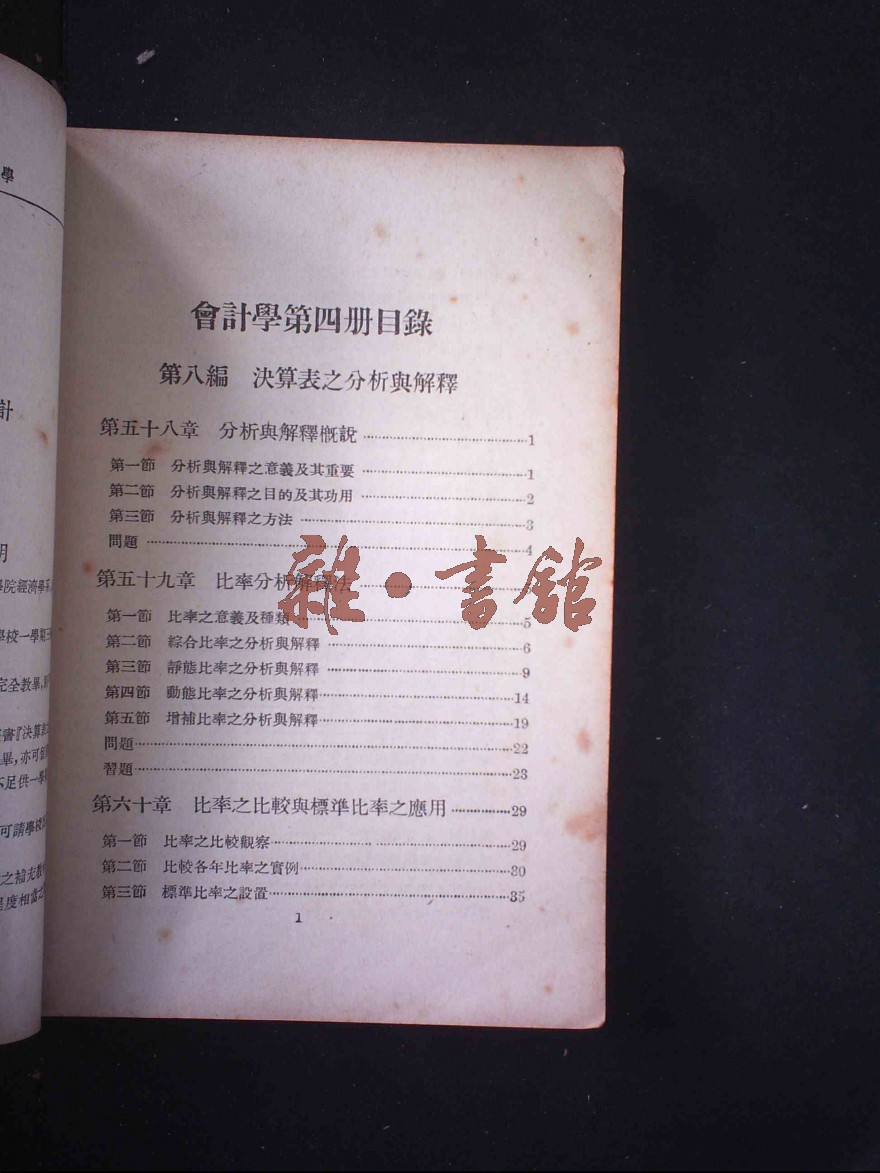 學
計
學院經濟學系
學校一學期三
完全教畢,
書『決算表
畢,亦可
不足供一學
可請學校
之補充教
程度相當之
會計學第四册目錄
第八編 決算表之分析與解釋
第五十八章 分析與解釋槪說……1
第一節 分析與解釋之意義及其重要……1
第二節 分析與解釋之目的及其功用……2
第三節 分析與解釋之方法……3
問題……4
第五十九章 比率分析解釋法……5
第一節 比率之意義及種類……5
第二節 綜合比率之分析與解釋……6
第三節 靜態比率之分析與解釋……9
第四節 動態比率之分析與解釋……14
第五節 增補比率之分析與解釋……19
問題……22
習題……23
第六十章 比率之比較與標準比率之應用……29
第一節 比率之比較觀察……29
第二節 比較各年比率之實例……30
第三節 標準比率之設置……35
1
雜·書館